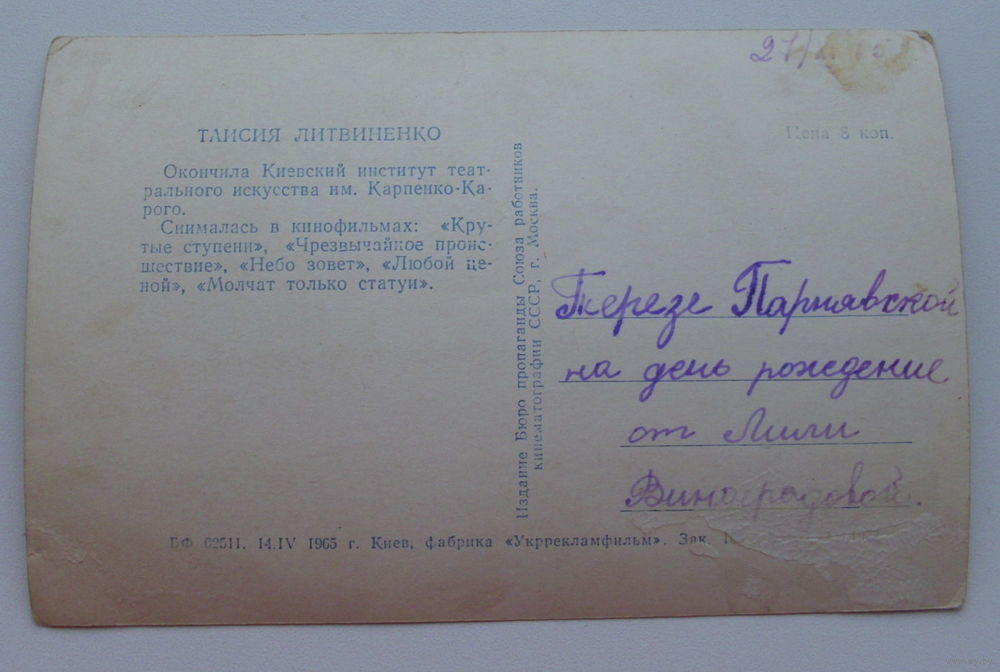 ТАИСИЯ ЛИТВИНЕНКО
Окончила Киевский институт теат-
рального искусства им. Карпенко-Ка-
рого.
Снималась в кинофильмах: «Кру-
тые ступени», «Чрезвычайное проис-
шествие», «Небо зовет», «Любой це-
ной», «Молчат только статуи».
Издание Бюро пропаганды Союза работников
кинематографии СССР, г. Москва.
Цена 8 коп.
Терезе Парнявской
на день рождение
от Лили
Виноградовой.
БФ 02511. 14.IV 1965 г. Киев, фабрика «Укррекламфильм». Зак.